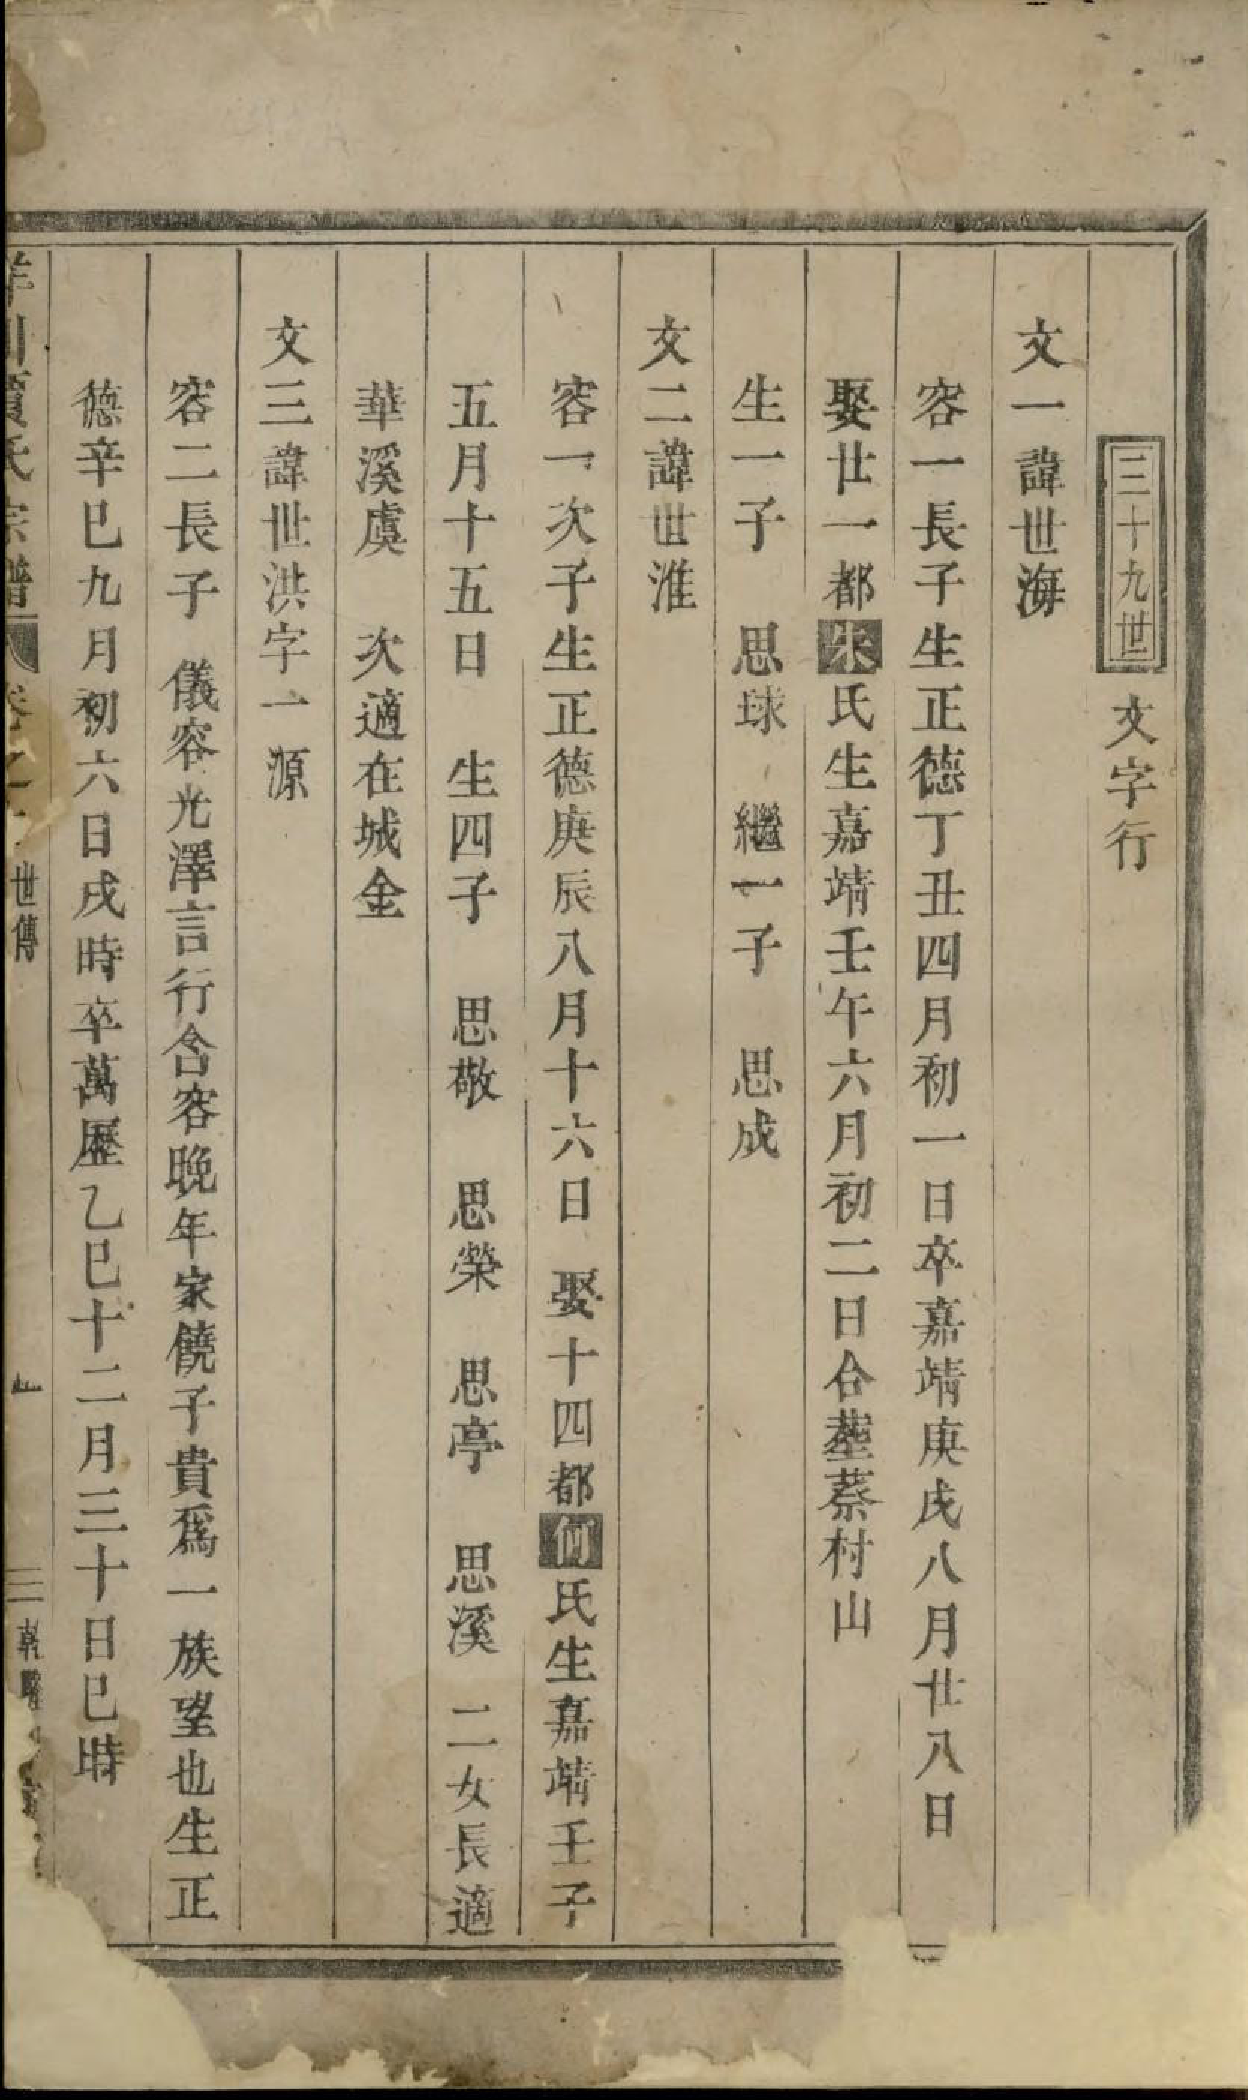 三十九世 文字行
文一諱世海
容一長子生正德丁丑四月初一日卒嘉靖庚戌八月廿八日
娶廿一都朱氏生嘉靖壬午六月初二日合塟蔡村山
生一子 思球 繼一子 思成
文二諱世淮
容一次子生正德庚辰八月十六日 娶十四都何氏生嘉靖壬子
五月十五日 生四子 思敬 思榮 思亭 思溪 二女長適
華溪虞 次適在城金
文三諱世洪字一源
容二長子 儀容光澤言行含容晚年家饒子貴爲一族望也生正
德辛巳九月初六日戌時卒萬歷乙巳十二月三十日巳時
氏宗譜 卷之 世傳